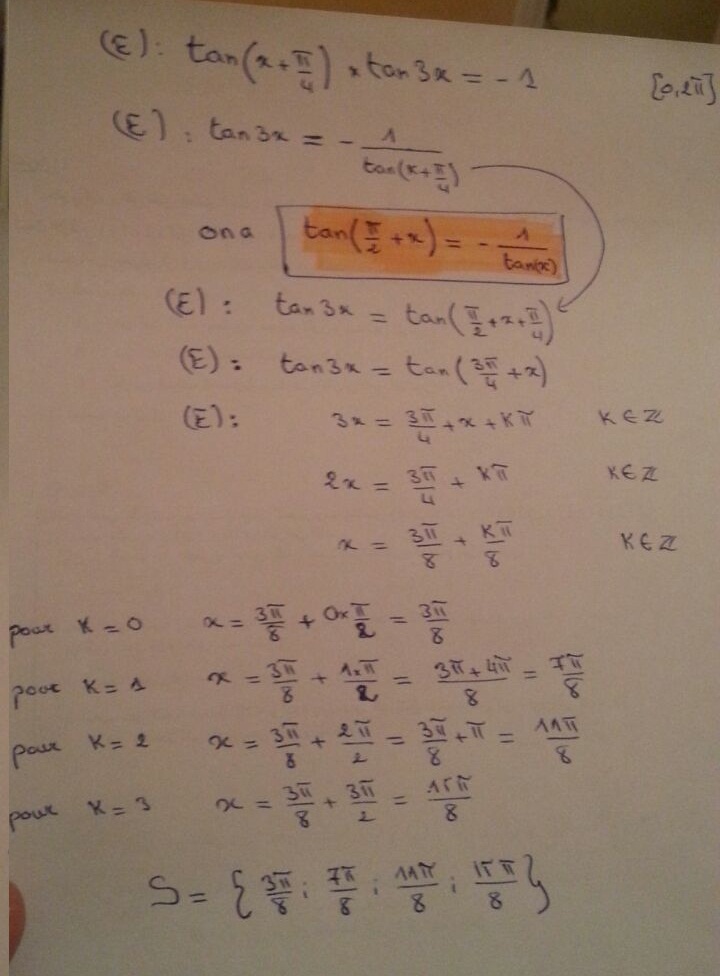 (E): tan(x+π/4) × tan3x = -1 [0,2π]
(E): tan3x = - 1/tan(x+π/4)
on a tan(π/2 + x) = - 1/tan(x)
(E): tan3x = tan(π/2 + x + π/4)
(E): tan3x = tan(3π/4 + x)
(E): 3x = 3π/4 + x + Kπ K∈ℤ
2x = 3π/4 + Kπ K∈ℤ
x = 3π/8 + Kπ/8 K∈ℤ
pour K=0 x = 3π/8 + 0×π/2 = 3π/8
pour K=1 x = 3π/8 + 1×π/2 = 3π+4π/8 = 7π/8
pour K=2 x = 3π/8 + 2π/2 = 3π/8 + π = 11π/8
pour K=3 x = 3π/8 + 3π/2 = 15π/8
S = {3π/8 ; 7π/8 ; 11π/8 ; 15π/8}